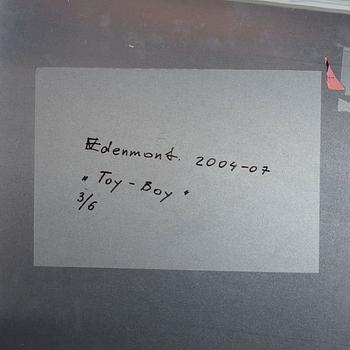 Edenmont. 2004-07
" Toy - Boy "
3/6